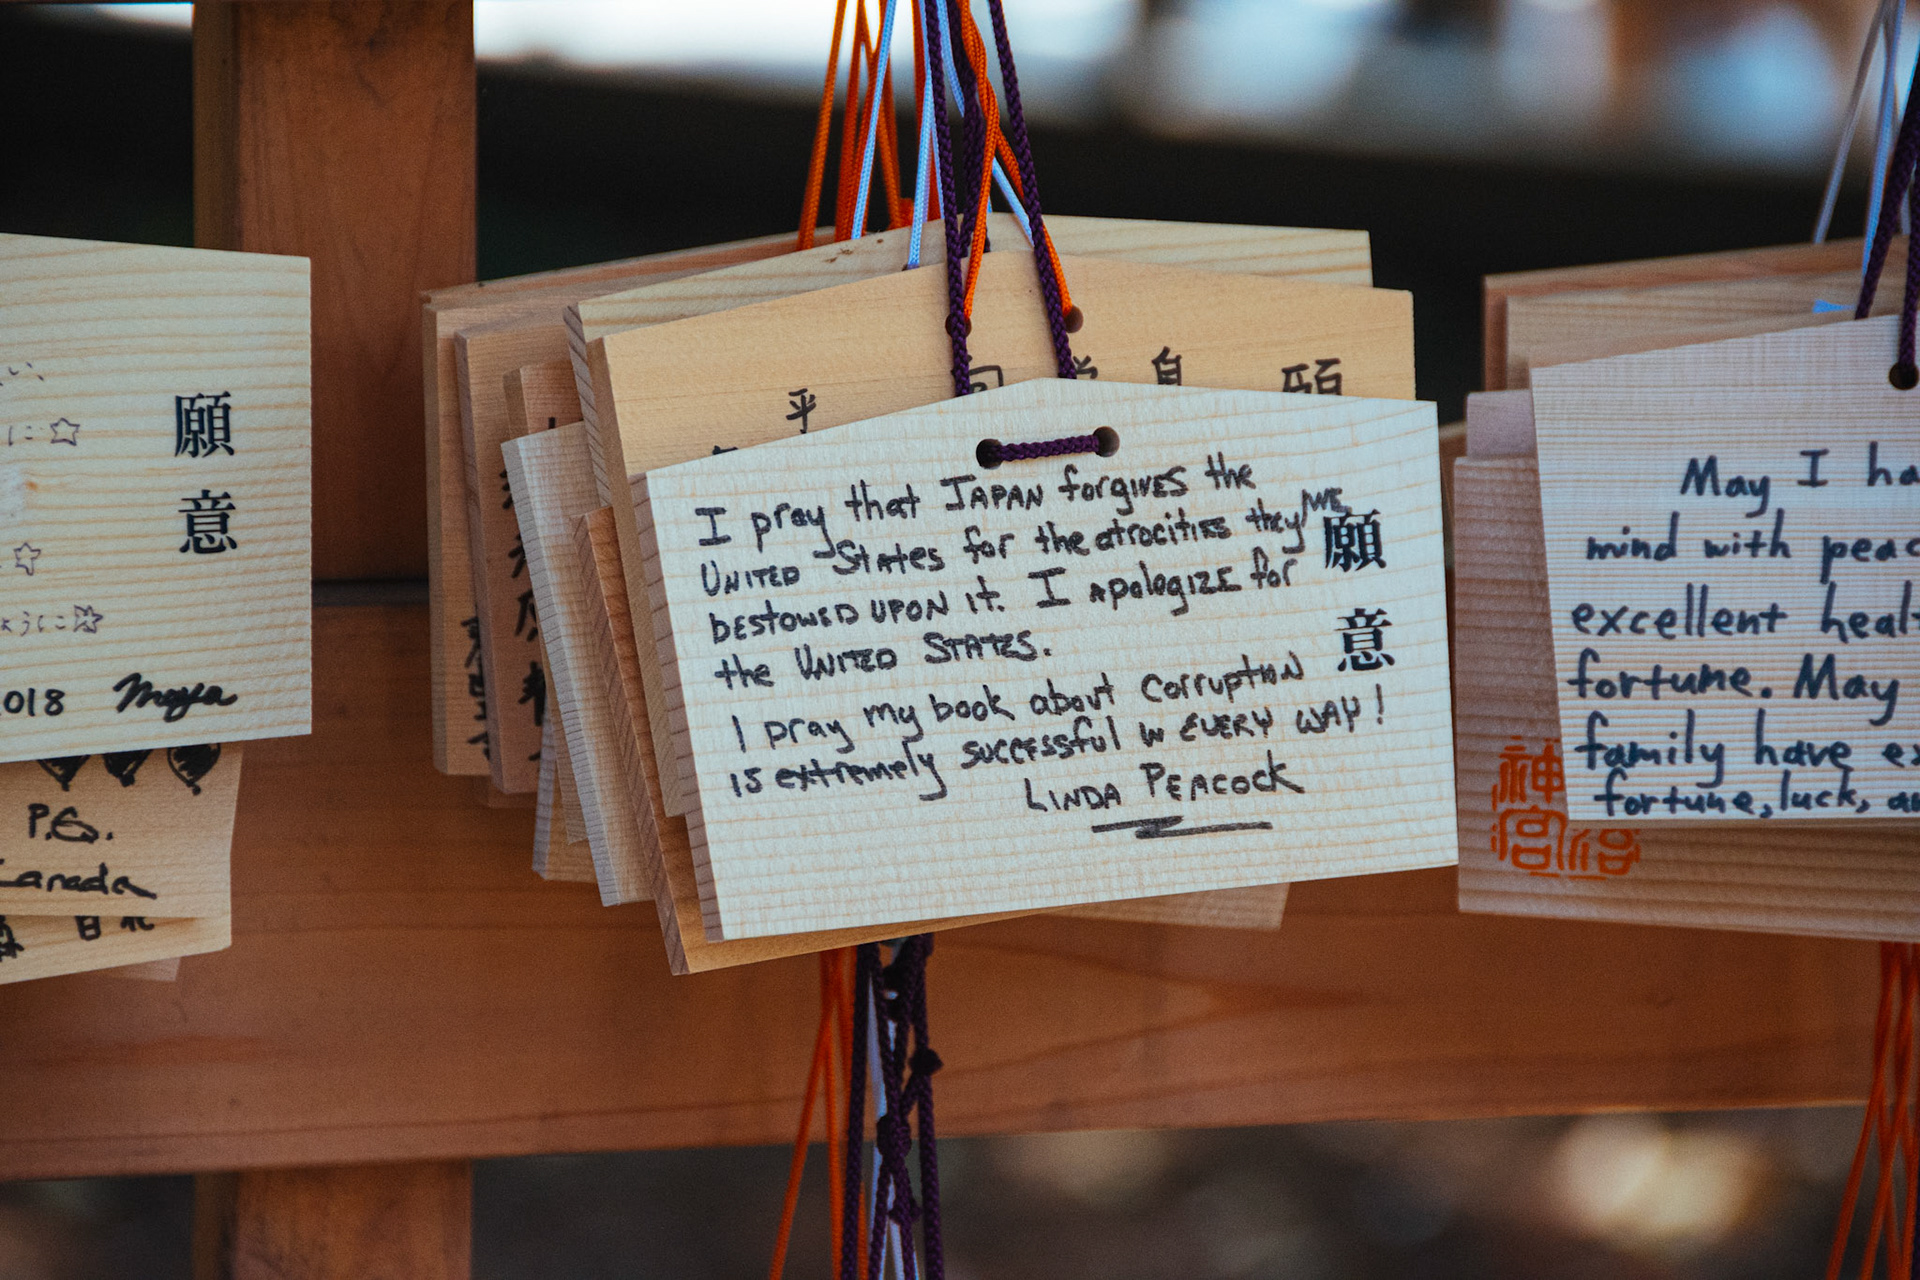 願意
に☆
☆
ように☆
2018 Moya
P.G.
Canada
平 同 学 自 願
I pray that JAPAN forgives the
UNITED States for the atrocities they/WE
bestowed upon it. I Apologize for
the UNITED STATES.
I pray my book about corruption
is extremely successful in EVERY WAY!
LINDA PEACOCK
願意
May I ha
mind with peac
excellent healt
fortune. May
family have ex
fortune, luck, an
神宮